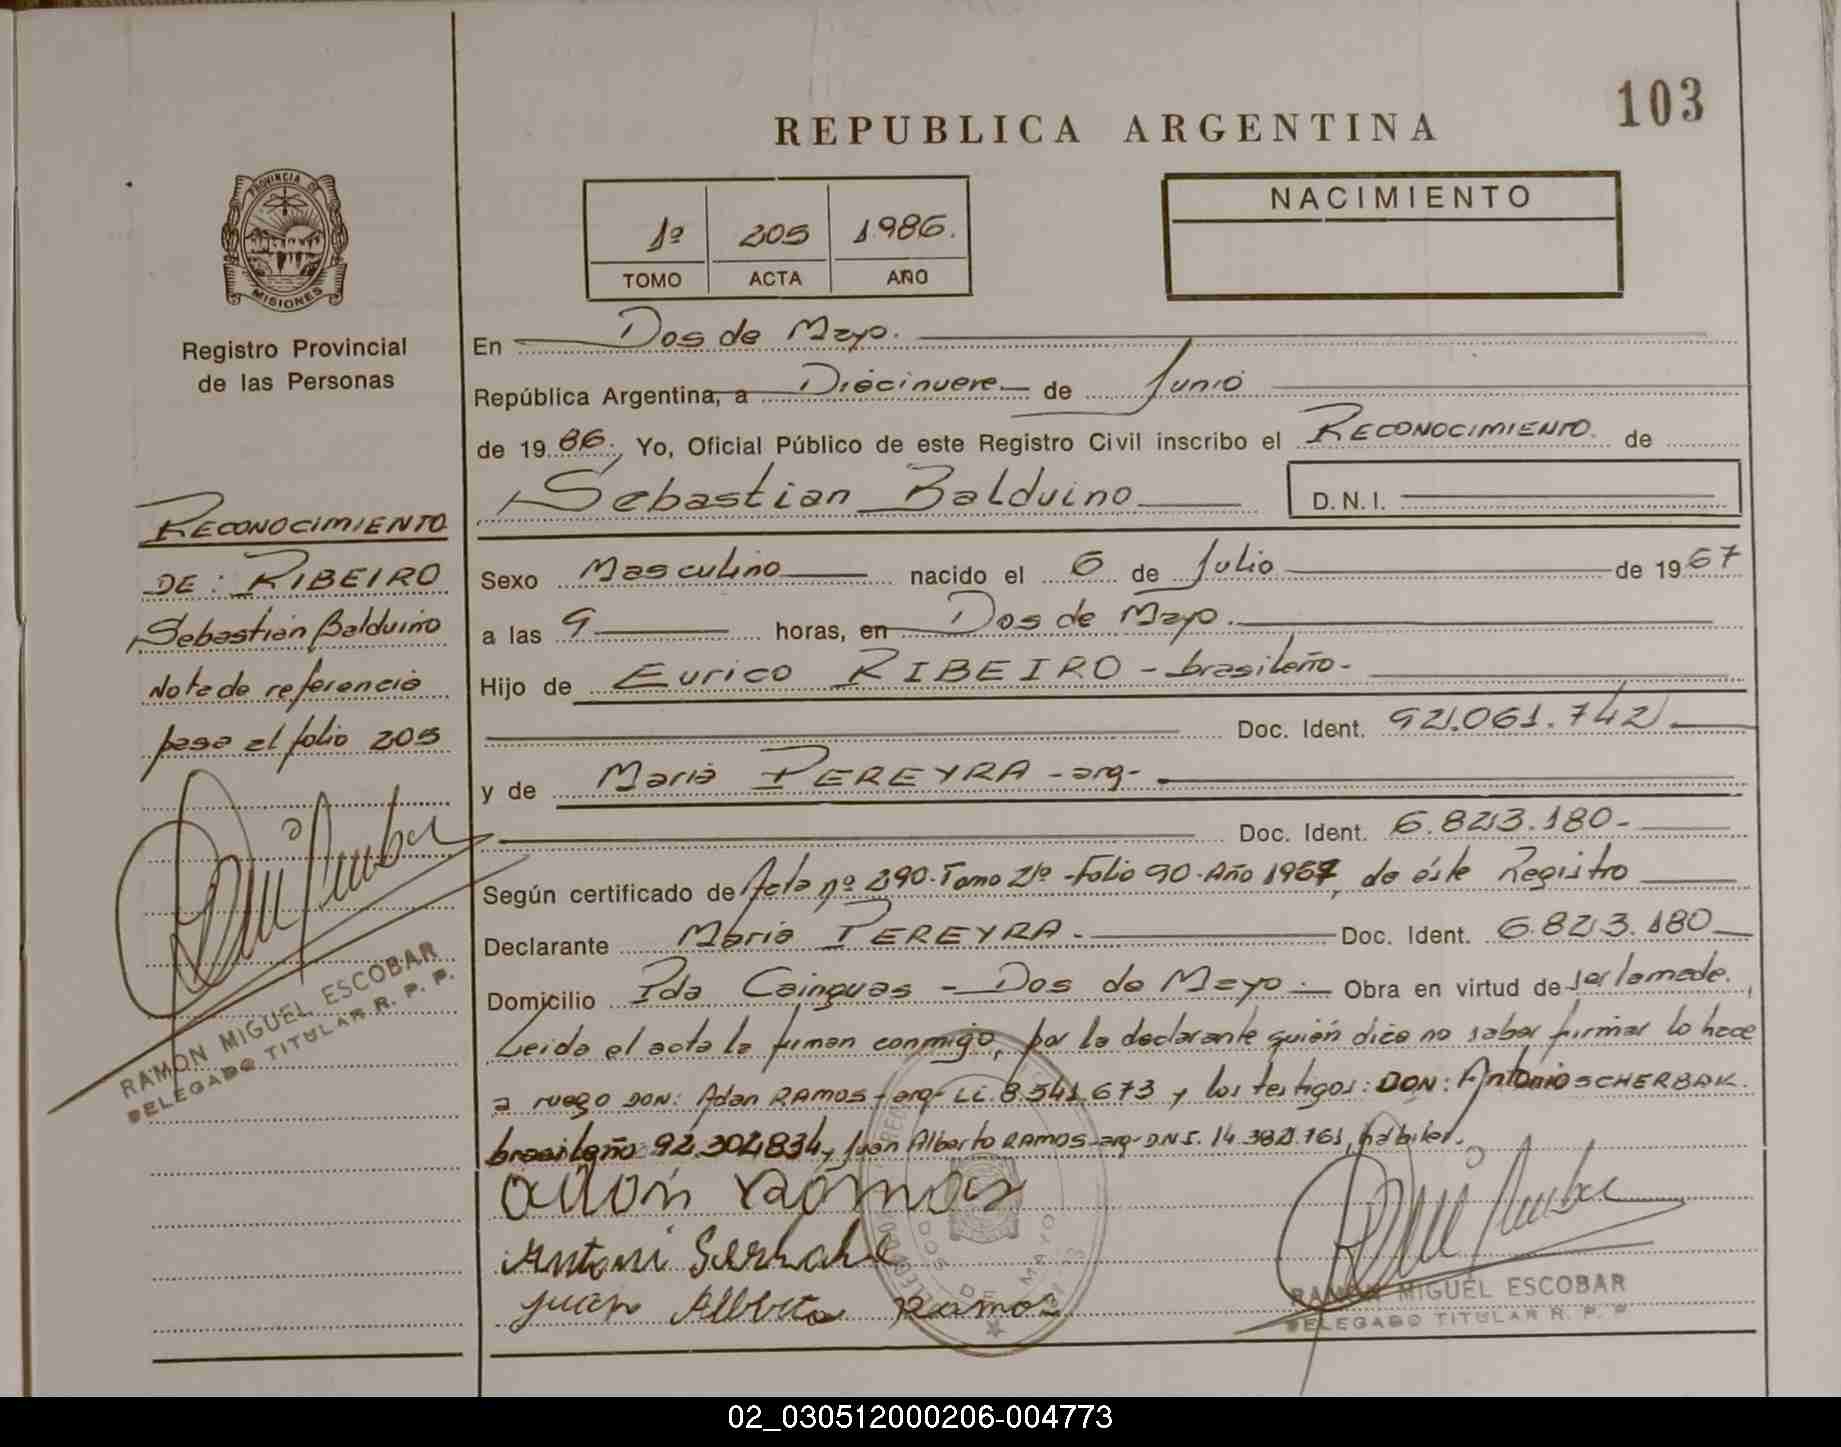 103
REPUBLICA ARGENTINA
PROVINCIA DE
MISIONES
Registro Provincial
de las Personas
1º 205 1986.
TOMO ACTA AÑO
NACIMIENTO
En Dos de Mayo.
República Argentina, a Diecinueve de Junio
de 1986. Yo, Oficial Público de este Registro Civil inscribo el RECONOCIMIENTO. de
Sebastian Balduino D.N.I.
Sexo Masculino nacido el 6 de Julio de 1967
a las 9 horas, en Dos de Mayo.
Hijo de Eurico RIBEIRO - brasileño-
Doc. Ident. 92.061.742
y de Maria PEREYRA - arg-
Doc. Ident. 6.823.180-
Según certificado de Acta nº 290. Tomo 2º - Folio 90. Año 1967, de éste Registro
Declarante Maria PEREYRA. Doc. Ident. 6.823.180
Domicilio Pda Cainguas - Dos de Mayo. Obra en virtud de ser la madre.
Leida el acta la firman conmigo, por la declarante quién dice no saber firmar lo hace
a ruego DON: Adan RAMOS - arg- L.E. 8.541.673 y los testigos: DON: Antonio SCHERBAK.
brasileño 92.304834 y Juan Alberto RAMOS - arg- DNI. 14.382.161, hábiles.
Adan Ramos
Antoni
Juan Alberto Ramos
DOS DE MAYO
RAMON MIGUEL ESCOBAR
DELEGADO TITULAR R. P. P.
RECONOCIMIENTO
DE: RIBEIRO
Sebastián Balduino
Nota de referencia
pasa al folio 205
RAMON MIGUEL ESCOBAR
DELEGADO TITULAR R. P. P.
02_030512000206-004773